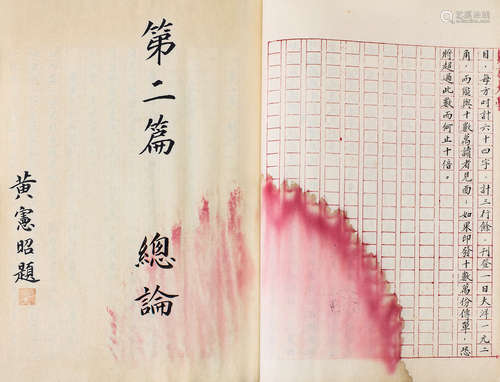 目，每方吋計六十四字，計三行餘，刊登一日大洋一元二
角，而能與十數萬讀者見面，如果印發十數萬份傳單，恐
將超過此數而何止十倍。
第二篇 總論
黃憲昭題